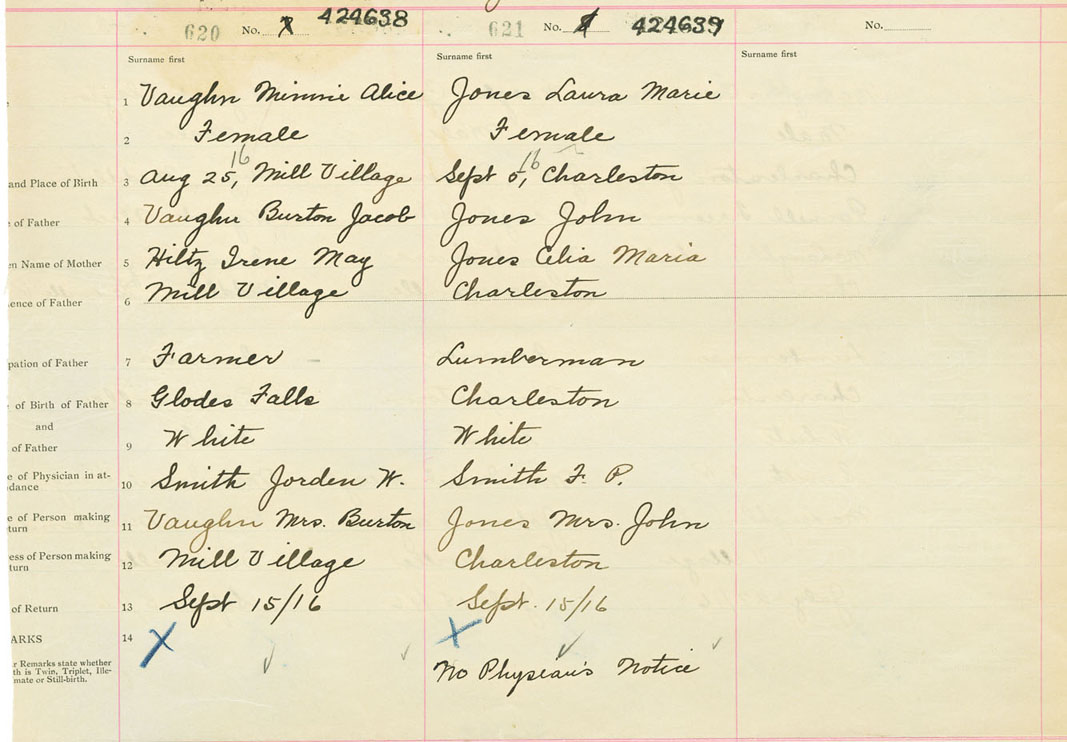 620 No. 424638
621 No. 424639
No.
Surname first
Surname first
Surname first
1 Vaughn Minnie Alice
Jones Laura Marie
2 Female
Female
and Place of Birth 3 Aug 25, 16 Mill Village
Sept 5, 16 Charleston
e of Father 4 Vaughn Burton Jacob
Jones John
en Name of Mother 5 Hiltz Irene May
Jones Celia Maria
ence of Father 6 Mill Village
Charleston
pation of Father 7 Farmer
Lumberman
of Birth of Father 8 Glodes Falls
Charleston
and
of Father 9 White
White
e of Physician in at-
dance 10 Smith Jorden W.
Smith F. P.
e of Person making
turn 11 Vaughn Mrs. Burton
Jones Mrs. John
ess of Person making
turn 12 Mill Village
Charleston
of Return 13 Sept 15/16
Sept. 15/16
ARKS 14 X
X
r Remarks state whether
th is Twin, Triplet, Ille-
mate or Still-birth.
No Physeian's Notice